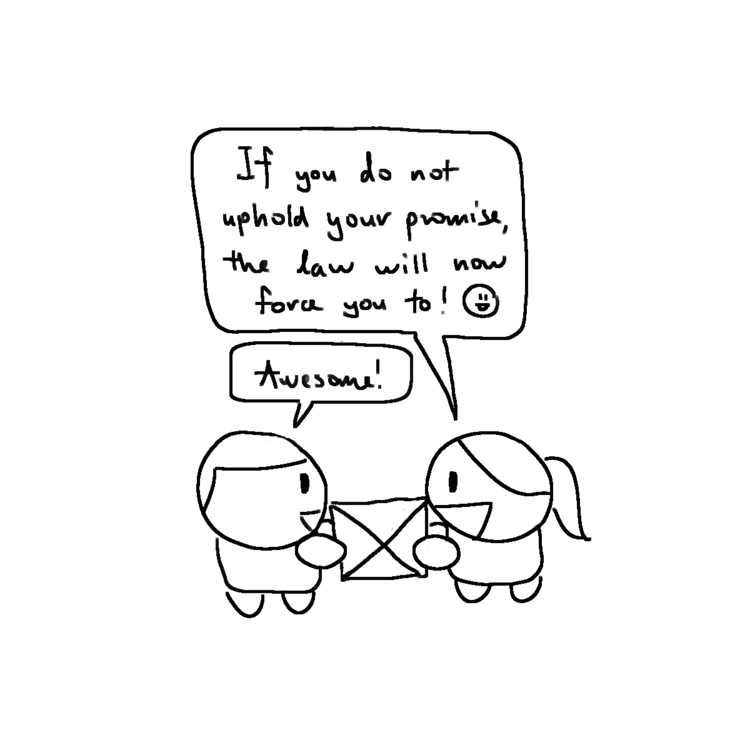 If you do not
uphold your promise,
the law will now
force you to!
Awesome!